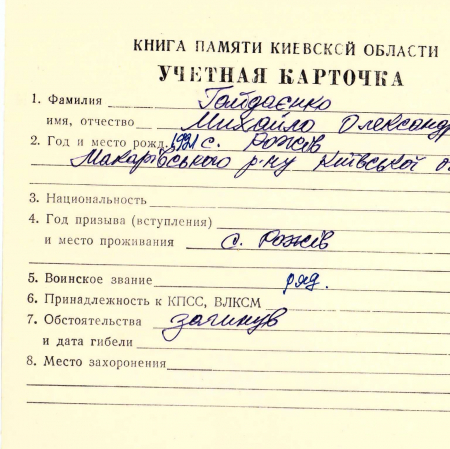 КНИГА ПАМЯТИ КИЕВСКОЙ ОБЛАСТИ
УЧЕТНАЯ КАРТОЧКА
1. Фамилия Гайдаєнко
имя, отчество Михайло Олександр
2. Год и место рожд. 1921 с. Рожів
Макарівського р-ну Київської о
3. Национальность
4. Год призыва (вступления)
и место проживания с. Рожів
5. Воинское звание ряд.
6. Принадлежность к КПСС, ВЛКСМ
7. Обстоятельства загинув
и дата гибели
8. Место захоронения